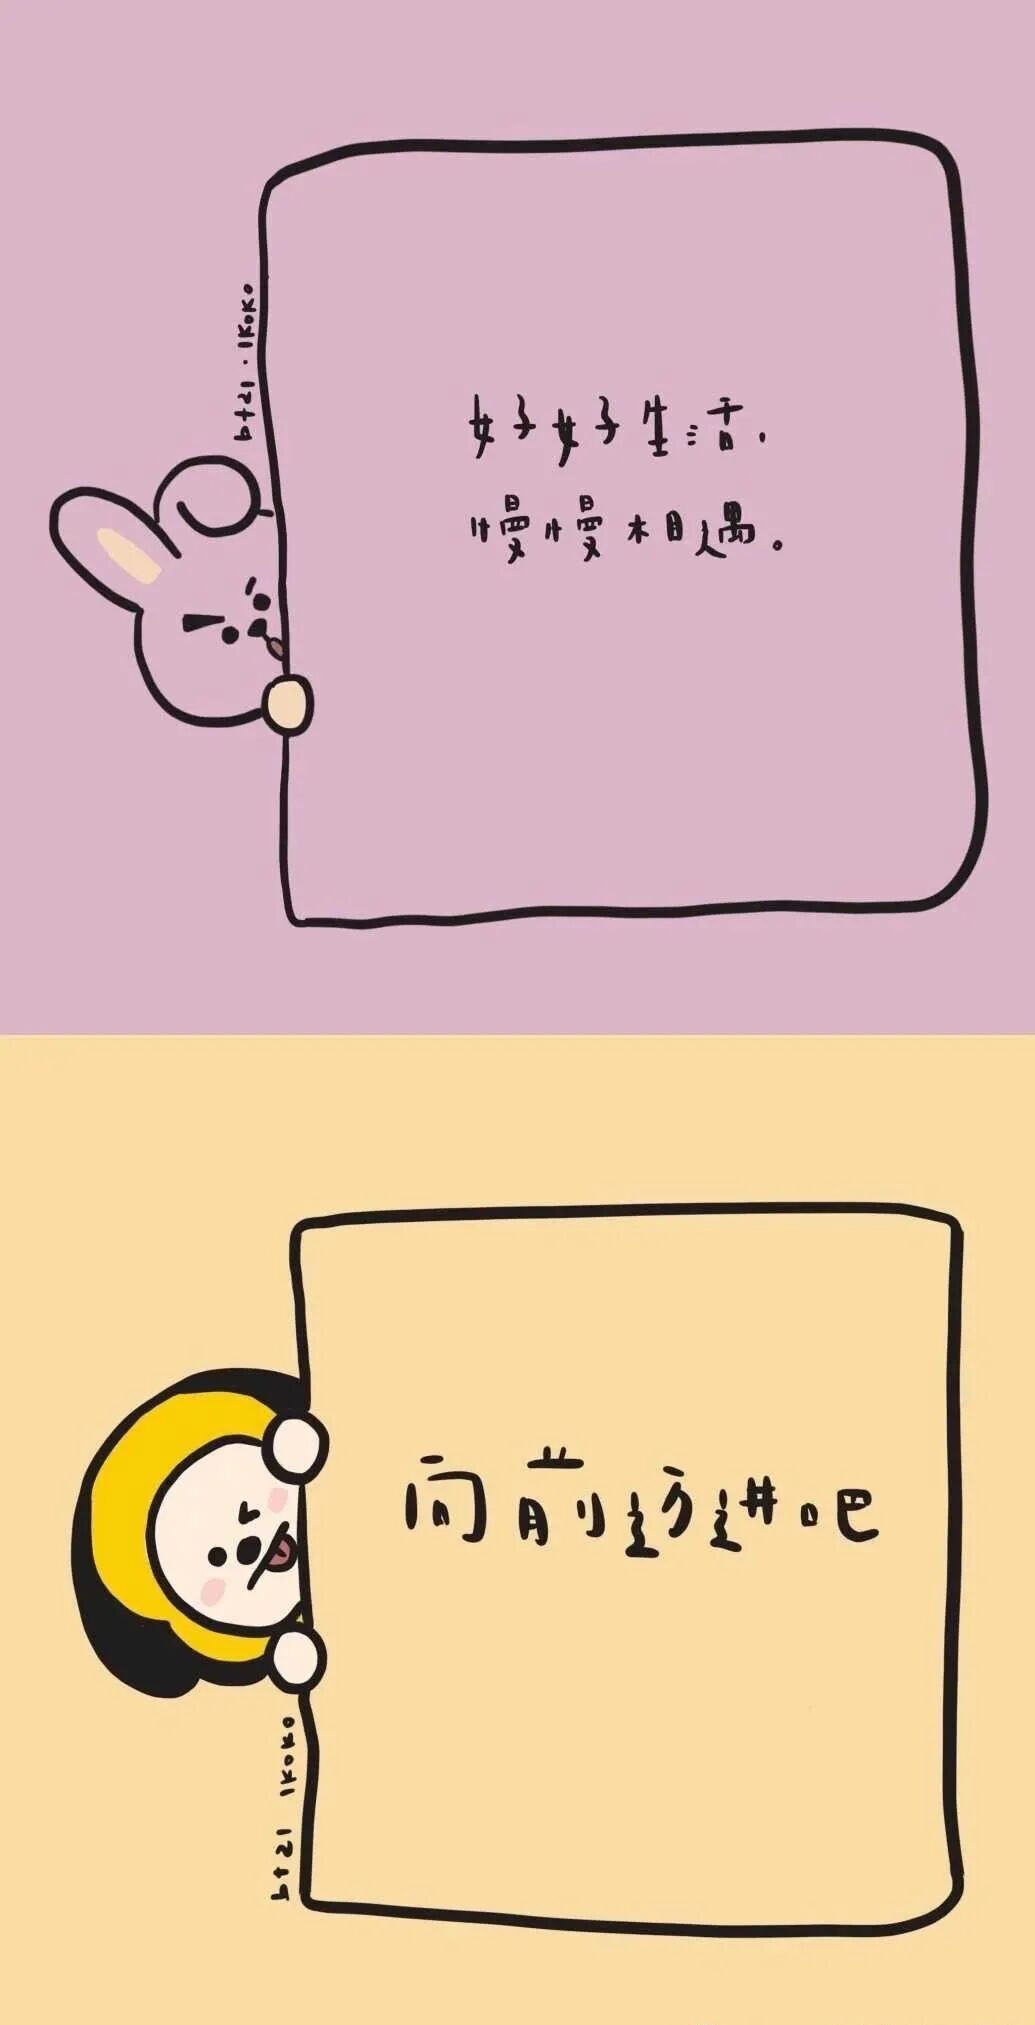 bt21 · IKOKO
好好生活，
慢慢相遇。
向前迈进吧
bt21 IKOKO